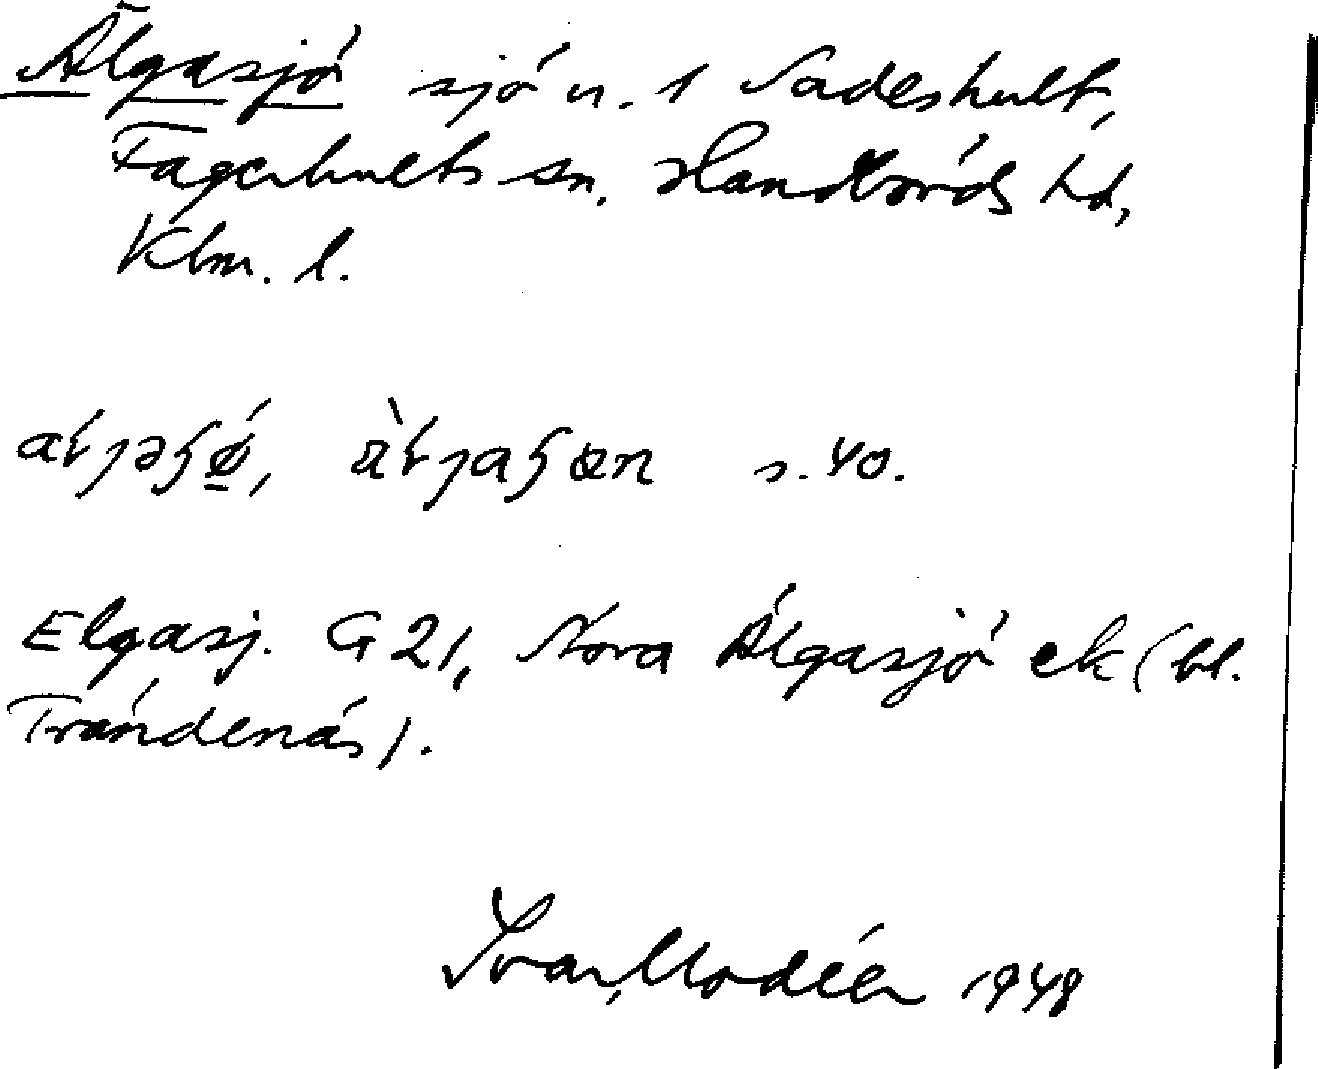 Älgasjö sjö n. 1 Sadeshult,
Fagerhults sn. Handbörds hd,
Klm. l.
s. 40.
Elgasj. G 21, Norra Älgasjö ek (bl.
Tränden​äs).
Ivar Modéer 1948